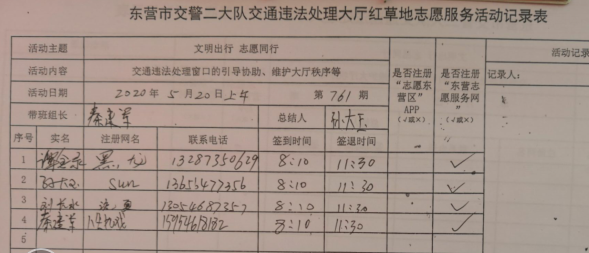 东营市交警二大队交通违法处理大厅红草地志愿服务活动记录表
活动主题 文明出行 志愿同行 是否注册“志愿东营区”APP(√或×) 是否注册“东营志愿服务网”(√或×) 活动记录
活动内容 交通违法处理窗口的引导协助、维护大厅秩序等 记录人:
活动日期 2020年5月20日上午 第761期
带班组长 秦建军 总结人 孙大玉
序号 实名 注册网名 联系电话 签到时间 签退时间
1 黑龙 13287350629 8:10 11:30 ✓
2 sun 13655477356 8:10 11:30 ✓
3 刘长水 13054687357 8:10 11:30 ✓
4 秦建军 15954618182 8:10 11:30 ✓
5